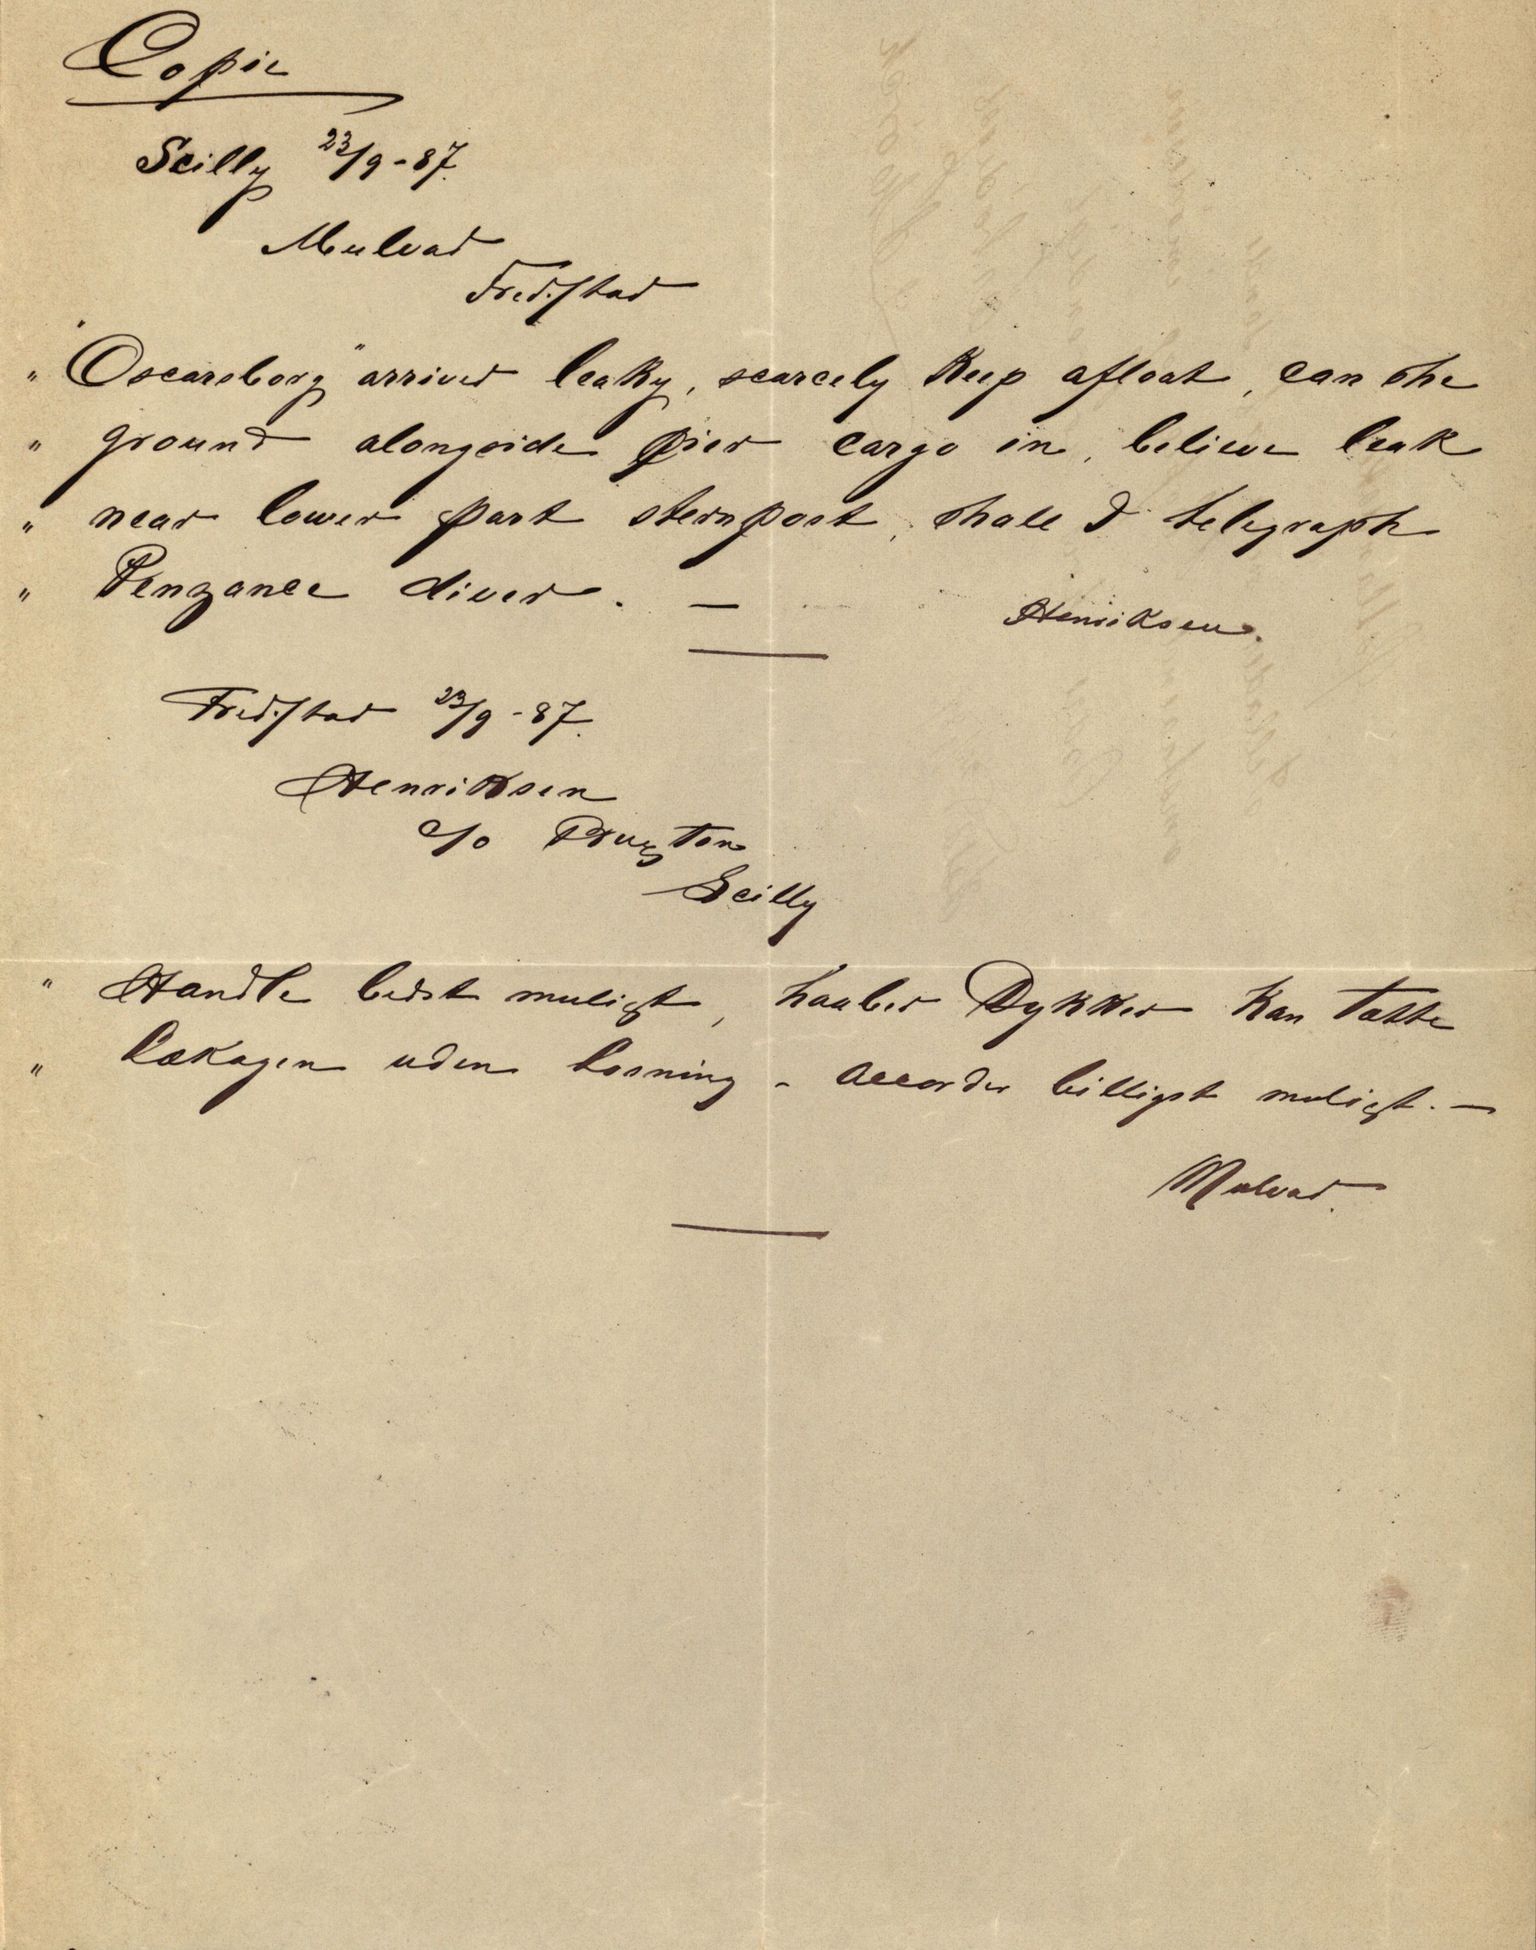 Copie
Scilly 23/9 - 87.
Mulvad
Fredstad
" "Oscarsborg" arrived leaky, scarcely keep afloat, can she
" ground alongside pier cargo in, believe leak
" near lower part sternpost, shall I telegraph
" Penzance diver. —
Henriksen.
Fredstad 23/9 - 87.
Henriksen
c/o
Scilly
" Handle bedst muligt, haaber Dykker kan tætte
" Lækagen uden Losning - accorder billigst muligt. —
Mulvad.